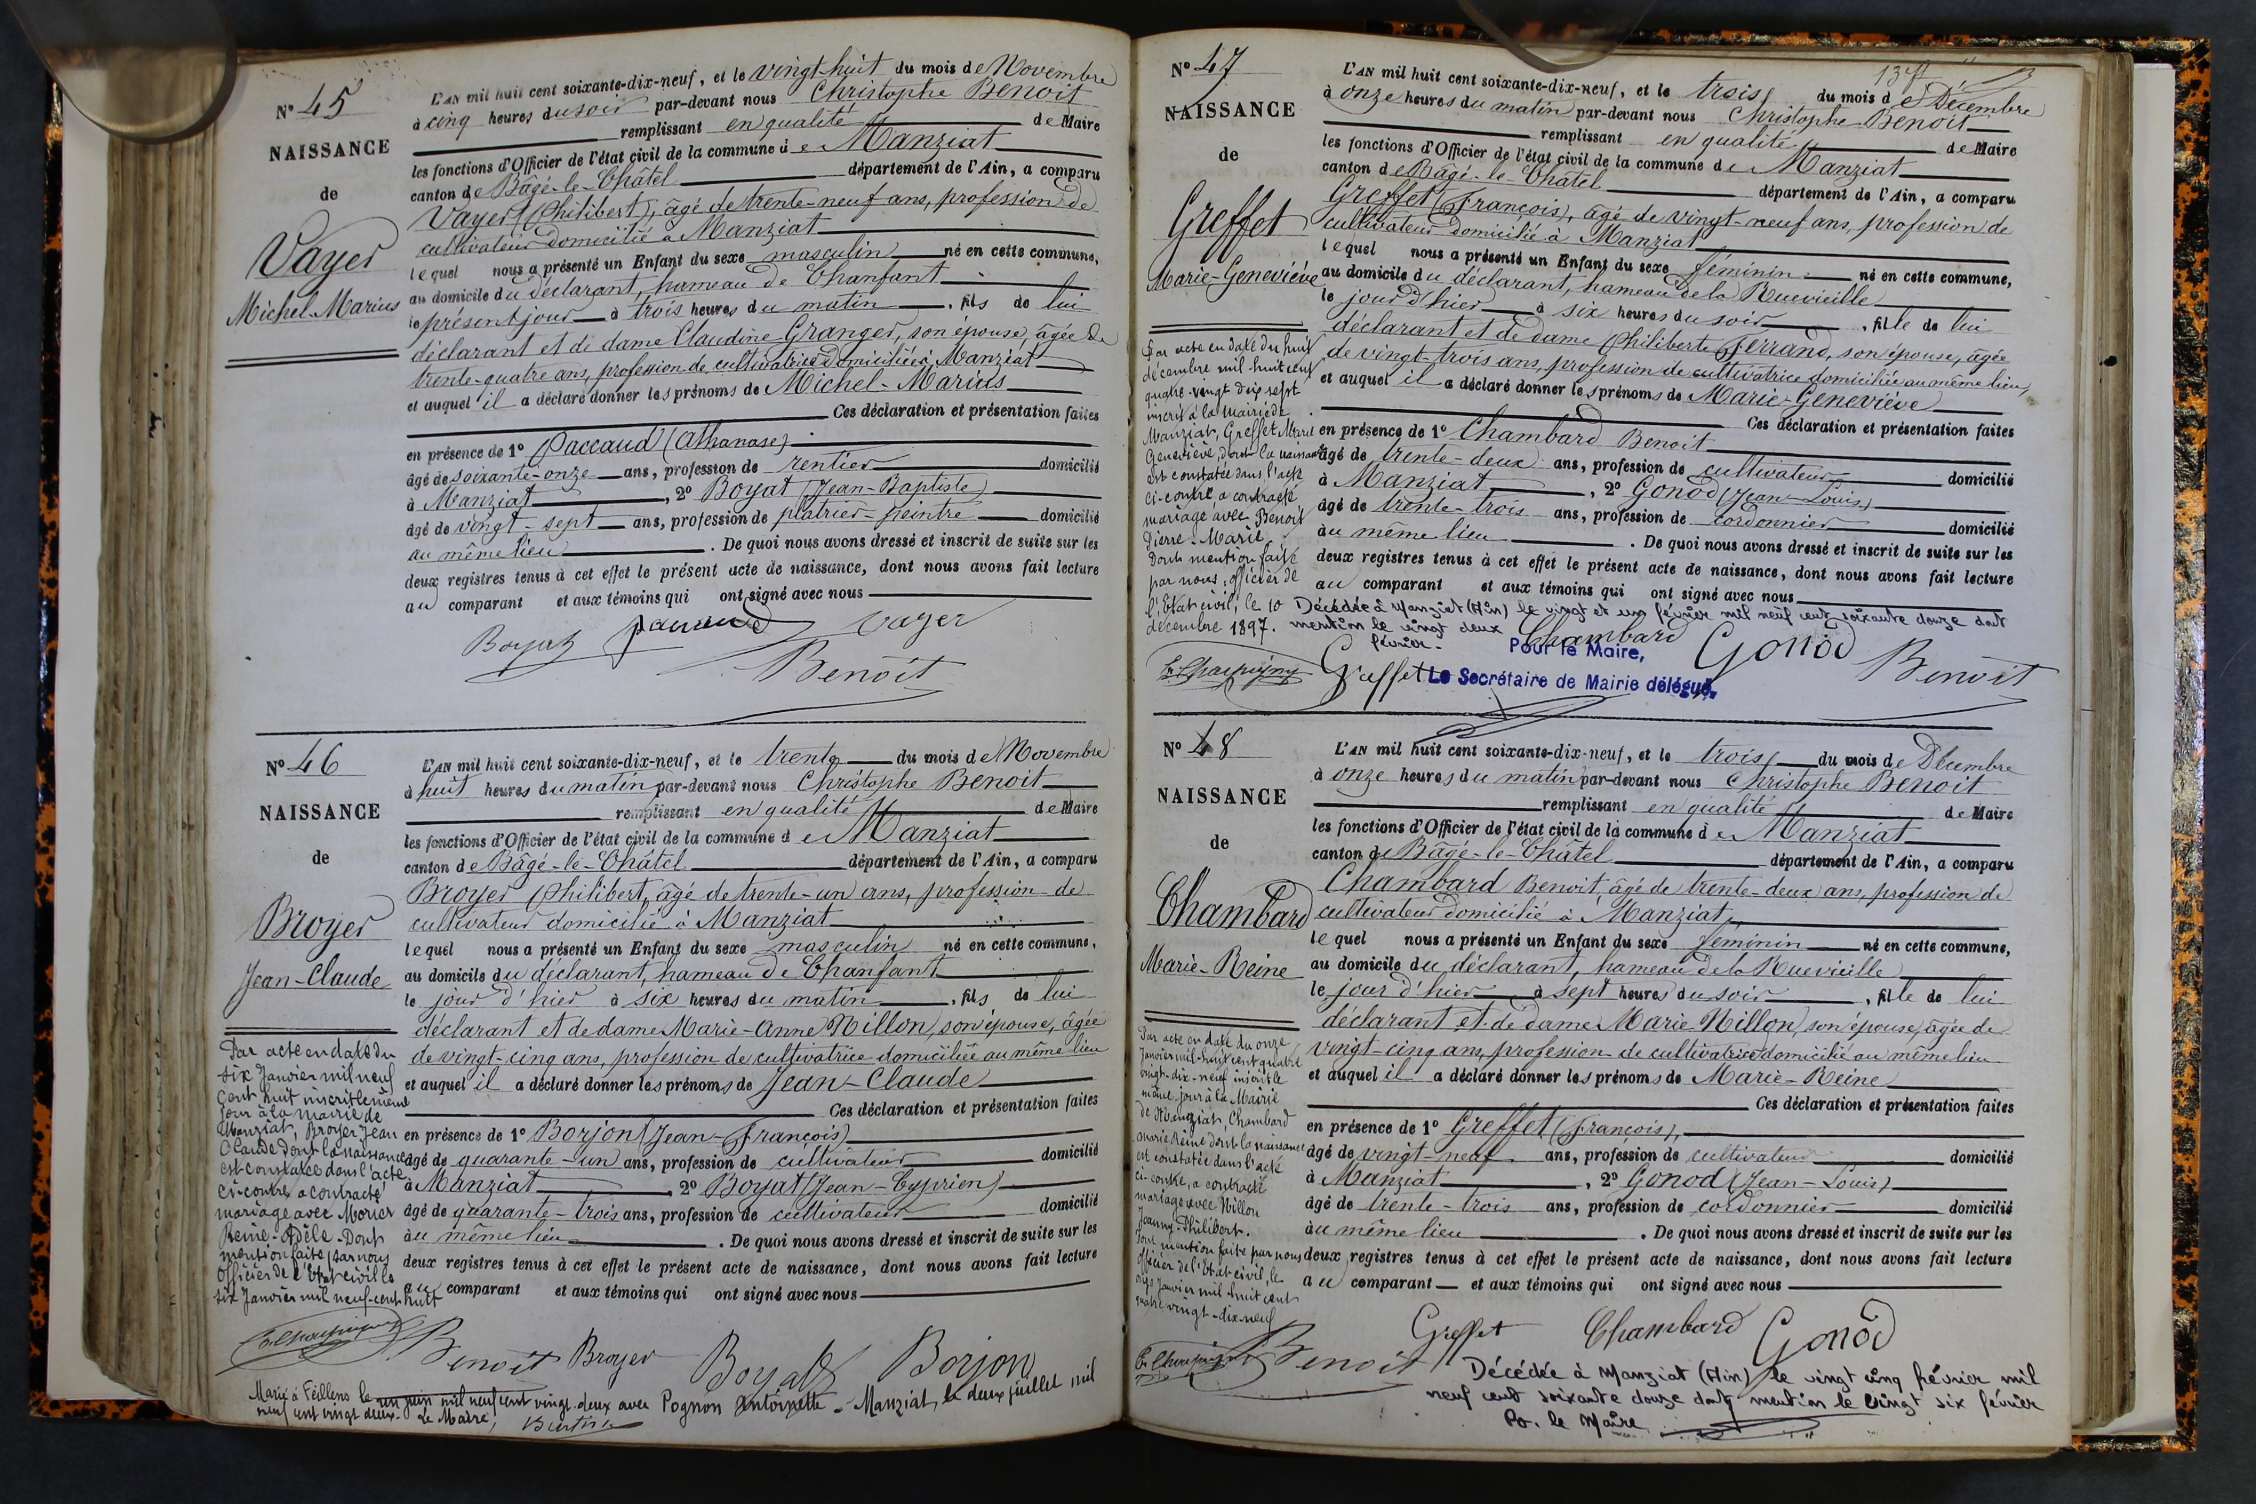 N° 45
NAISSANCE
de
Vayer
Michel-Marius
L'AN mil huit cent soixante-dix-neuf, et le vingt huit du mois de Novembre
à cinq heures du soir par-devant nous Christophe Benoit
remplissant en qualité de Maire
les fonctions d'Officier de l'état civil de la commune de Manziat
canton de Bâgé-le-Châtel département de l'Ain, a comparu
Vayer (Philibert), âgé de trente-neuf ans, profession de
cultivateur domicilié à Manziat
lequel nous a présenté un Enfant du sexe masculin né en cette commune,
au domicile du déclarant, hameau de Chanfant
le présent jour à trois heures du matin, fils de lui
déclarant et de dame Claudine Granger, son épouse, âgée de
trente-quatre ans, profession de cultivatrice domiciliée à Manziat
et auquel il a déclaré donner les prénoms de Michel-Marius
Ces déclaration et présentation faites
en présence de 1° Paccaud (Athanase)
âgé de soixante-onze ans, profession de rentier domicilié
à Manziat, 2° Boyat (Jean-Baptiste)
âgé de vingt-sept ans, profession de plâtrier-peintre domicilié
au même lieu. De quoi nous avons dressé et inscrit de suite sur les
deux registres tenus à cet effet le présent acte de naissance, dont nous avons fait lecture
au comparant et aux témoins qui ont signé avec nous
Boyat Paccaud Vayer
Benoit
N° 46
NAISSANCE
de
Broyer
Jean-Claude
Par acte en date du
six Janvier mil neuf
cent huit inscrit le même
jour à la mairie de
Manziat, Broyer Jean
Claude dont la naissance
est constatée dans l'acte
ci-contre a contracté
mariage avec Morier
Reine-Adèle. Dont
mention faite par nous
Officier de l'Etat civil le
six Janvier mil neuf-cent huit
L'AN mil huit cent soixante-dix-neuf, et le trente du mois de Novembre
à huit heures du matin par-devant nous Christophe Benoit
remplissant en qualité de Maire
les fonctions d'Officier de l'état civil de la commune de Manziat
canton de Bâgé-le-Châtel département de l'Ain, a comparu
Broyer Philibert, âgé de trente-un ans, profession de
cultivateur domicilié à Manziat
lequel nous a présenté un Enfant du sexe masculin né en cette commune,
au domicile du déclarant, hameau de Chanfant
le jour d'hier à six heures du matin, fils de lui
déclarant et de dame Marie-Anne Nillon, son épouse, âgée
de vingt-cinq ans, profession de cultivatrice domiciliée au même lieu
et auquel il a déclaré donner les prénoms de Jean-Claude
Ces déclaration et présentation faites
en présence de 1° Borjon (Jean-François)
âgé de quarante-un ans, profession de cultivateur domicilié
à Manziat, 2° Boyat (Jean-Cyprien)
âgé de quarante-trois ans, profession de cultivateur domicilié
au même lieu. De quoi nous avons dressé et inscrit de suite sur les
deux registres tenus à cet effet le présent acte de naissance, dont nous avons fait lecture
au comparant et aux témoins qui ont signé avec nous
Benoit Broyer Boyat Borjon
Marié à Feillens le un juin mil neuf cent vingt-deux avec Pognon Antoinette. Manziat, le deux juillet mil
neuf cent vingt deux. Le Maire,
N° 47
NAISSANCE
de
Greffet
Marie-Geneviève
Par acte en date du huit
décembre mil-huit cent
quatre-vingt dix sept
inscrit à la mairie de
Manziat, Greffet Marie
Geneviève, dont la naissance
est constatée dans l'acte
ci-contre a contracté
mariage avec Benoit
Pierre-Marie.
Dont mention faite
par nous, officier de
l'Etat civil, le 10
décembre 1897.
L'AN mil huit cent soixante-dix-neuf, et le trois du mois de Décembre
à onze heures du matin par-devant nous Christophe Benoit
remplissant en qualité de Maire
les fonctions d'Officier de l'état civil de la commune de Manziat
canton de Bâgé-le-Châtel département de l'Ain, a comparu
Greffet (François), âgé de vingt-neuf ans, profession de
cultivateur domicilié à Manziat
lequel nous a présenté un Enfant du sexe féminin né en cette commune,
au domicile du déclarant, hameau de la Ruevieille
le jour d'hier à six heures du soir, fille de lui
déclarant et de dame Philiberte Ferrand, son épouse, âgée
de vingt-trois ans, profession de cultivatrice domiciliée au même lieu,
et auquel il a déclaré donner les prénoms de Marie-Geneviève
Ces déclaration et présentation faites
en présence de 1° Chambard Benoit
âgé de trente-deux ans, profession de cultivateur domicilié
à Manziat, 2° Gonod (Jean-Louis)
âgé de trente-trois ans, profession de cordonnier domicilié
au même lieu. De quoi nous avons dressé et inscrit de suite sur les
deux registres tenus à cet effet le présent acte de naissance, dont nous avons fait lecture
au comparant et aux témoins qui ont signé avec nous
Décédée à Manziat (Ain) le vingt et un février mil neuf cent soixante douze dont
mention le vingt deux
février.
Chambard Gonod
Pour le Maire,
Greffet Le Secrétaire de Mairie délégué, Benoit
N° 48
NAISSANCE
de
Chambard
Marie-Reine
Par acte en date du onze
Janvier mil-huit cent quatre
vingt-dix-neuf inscrit le
même jour à la Mairie
de Manziat, Chambard
Marie Reine dont la naissance
est constatée dans l'acte
ci-contre, a contracté
mariage avec Nillon
Jeanny-Philibert.
Dont mention faite par nous
officier de l'Etat civil, le
onze Janvier mil-huit cent
quatre vingt-dix-neuf
L'AN mil huit cent soixante-dix-neuf, et le trois du mois de Décembre
à onze heures du matin par-devant nous Christophe Benoit
remplissant en qualité de Maire
les fonctions d'Officier de l'état civil de la commune de Manziat
canton de Bâgé-le-Châtel département de l'Ain, a comparu
Chambard Benoit, âgé de trente-deux ans, profession de
cultivateur domicilié à Manziat
lequel nous a présenté un Enfant du sexe féminin né en cette commune,
au domicile du déclarant, hameau de la Ruevieille
le jour d'hier à sept heures du soir, fille de lui
déclarant et de dame Marie Nillon, son épouse, âgée de
vingt-cinq ans, profession de cultivatrice domicilié au même lieu
et auquel il a déclaré donner les prénoms de Marie-Reine
Ces déclaration et présentation faites
en présence de 1° Greffet (François),
âgé de vingt-neuf ans, profession de cultivateur domicilié
à Manziat, 2° Gonod (Jean-Louis)
âgé de trente-trois ans, profession de cordonnier domicilié
au même lieu. De quoi nous avons dressé et inscrit de suite sur les
deux registres tenus à cet effet le présent acte de naissance, dont nous avons fait lecture
au comparant et aux témoins qui ont signé avec nous
Benoit Greffet Chambard Gonod
Décédée à Manziat (Ain) le vingt cinq février mil
neuf cent soixante douze dont mention le vingt six février
Po. le Maire